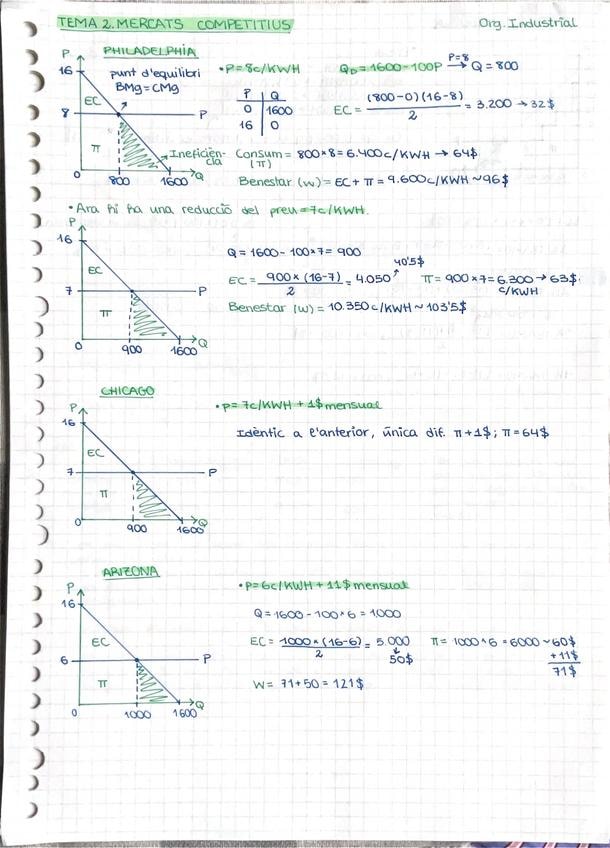 TEMA 2. MERCATS COMPETITIUS
Org. Industrial
PHILADELPHIA
P
16
punt d'equilibri
BMg = CMg
EC
8
P
π
Ineficièn-
cia
0
800
1600
Q
• P = 8c/KWH
Q_D = 1600 - 100P —P=8→ Q = 800
P | Q
0 | 1600
16 | 0
EC = (800-0)(16-8) / 2 = 3.200 → 32$
Consum = 800 * 8 = 6.400 c/KWH → 64$
(π)
Benestar (w) = EC + π = 9.600 c/KWH ~ 96$
• Ara hi ha una reducció del preu = 7c/KWH.
P
16
EC
7
P
π
0
900
1600
Q
Q = 1600 - 100 * 7 = 900
EC = 900 * (16-7) / 2 = 4.050 ↗ 40'5$
π = 900 * 7 = 6.300 → 63$.
c/KWH
Benestar (w) = 10.350 c/KWH ~ 103'5$
CHICAGO
P
16
EC
7
P
π
0
900
1600
Q
• p = 7c/KWH + 1$ mensual
Idèntic a l'anterior, única dif. π + 1$; π = 64$
ARIZONA
P
16
EC
6
P
π
0
1000
1600
Q
• P = 6c/KWH + 11$ mensual
Q = 1600 - 100 * 6 = 1000
EC = 1000 * (16-6) / 2 = 5.000
50$
π = 1000 * 6 = 6000 ~ 60$
+ 11$
71$
W = 71 + 50 = 121$